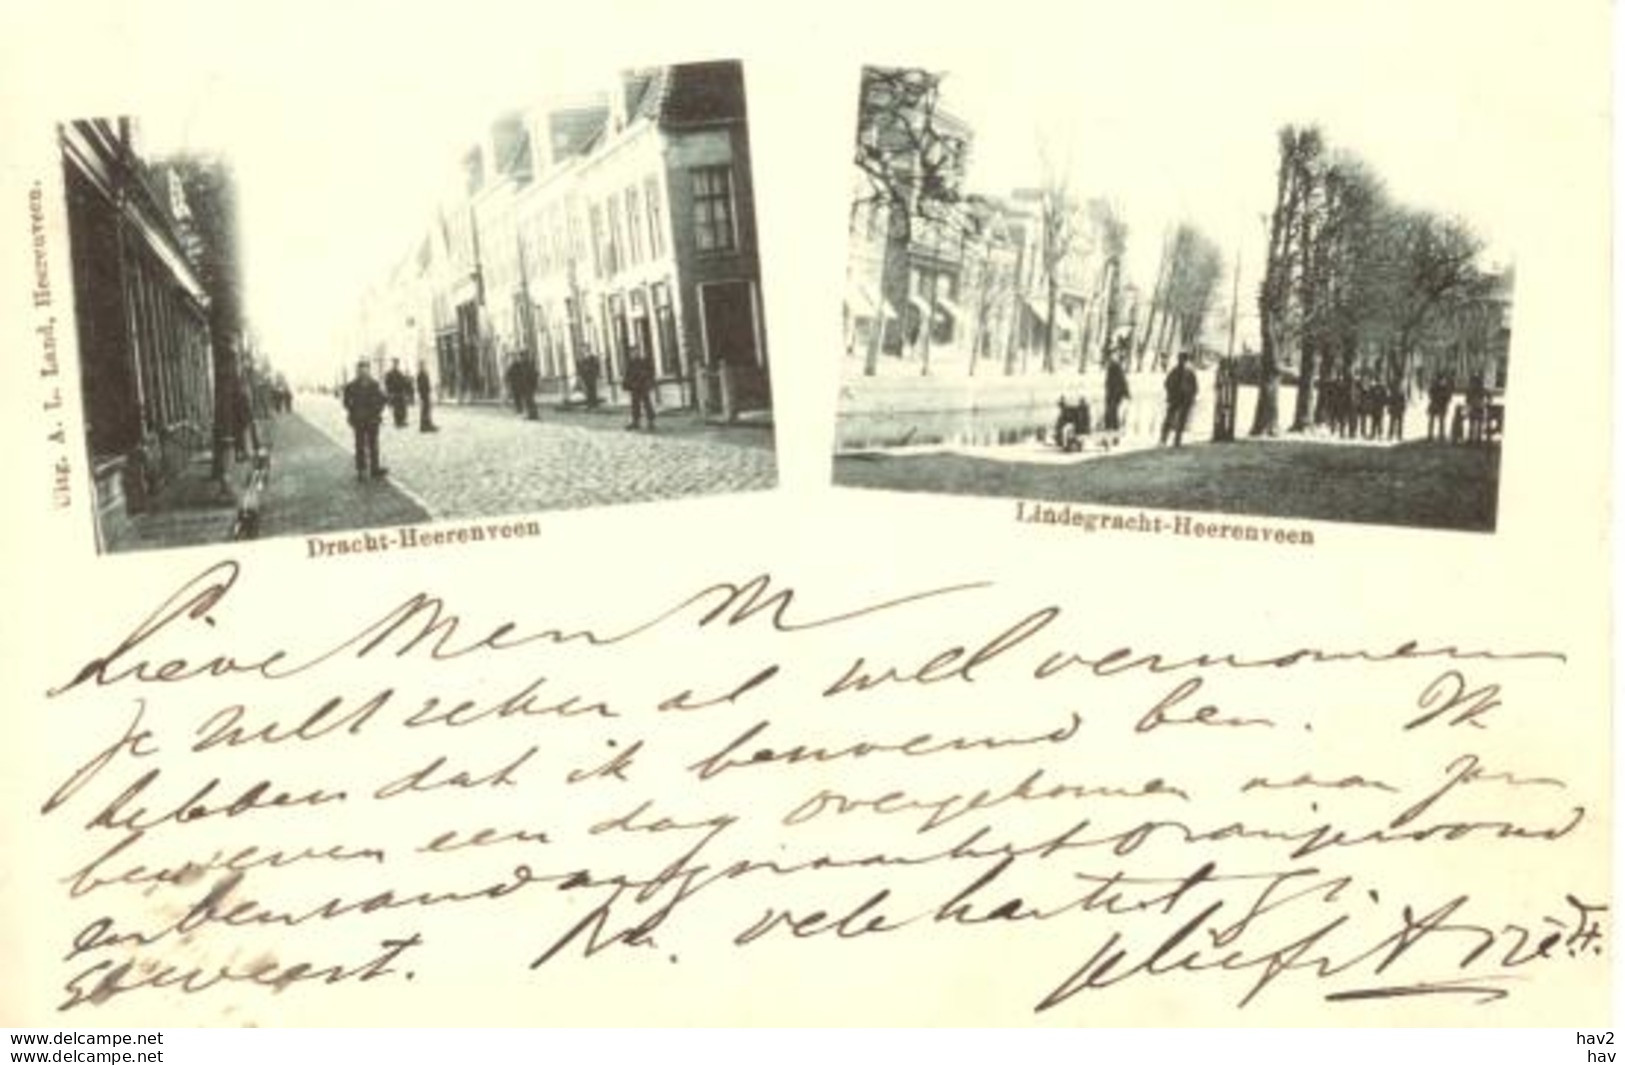 Uitg. A. L. Land, Heerenveen.
Dracht-Heerenveen
Lindegracht-Heerenveen
Lieve Men M
Je zult zeker al wel vernomen
hebben dat ik benoemd ben. Ik
ben even een dag overgekomen naar
en ben vandaag naar het Oranjewoud
geweest. Nu. vele hartel gr.
je liefh
www.delcampe.net
www.delcampe.net
hav2
hav